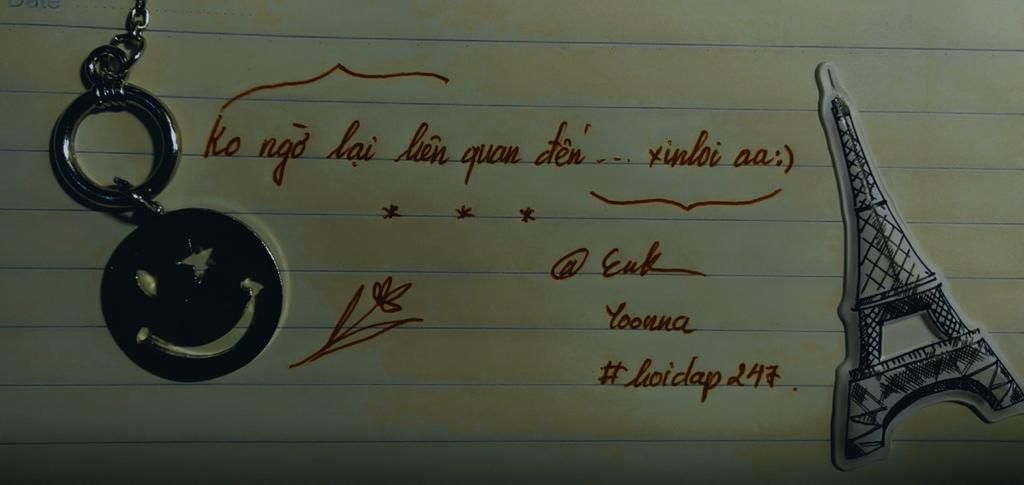 Date
Ko ngờ lại liên quan đến ... xinloi aa:)
* * *
@ Euk
Yoonna
# hoidap247.